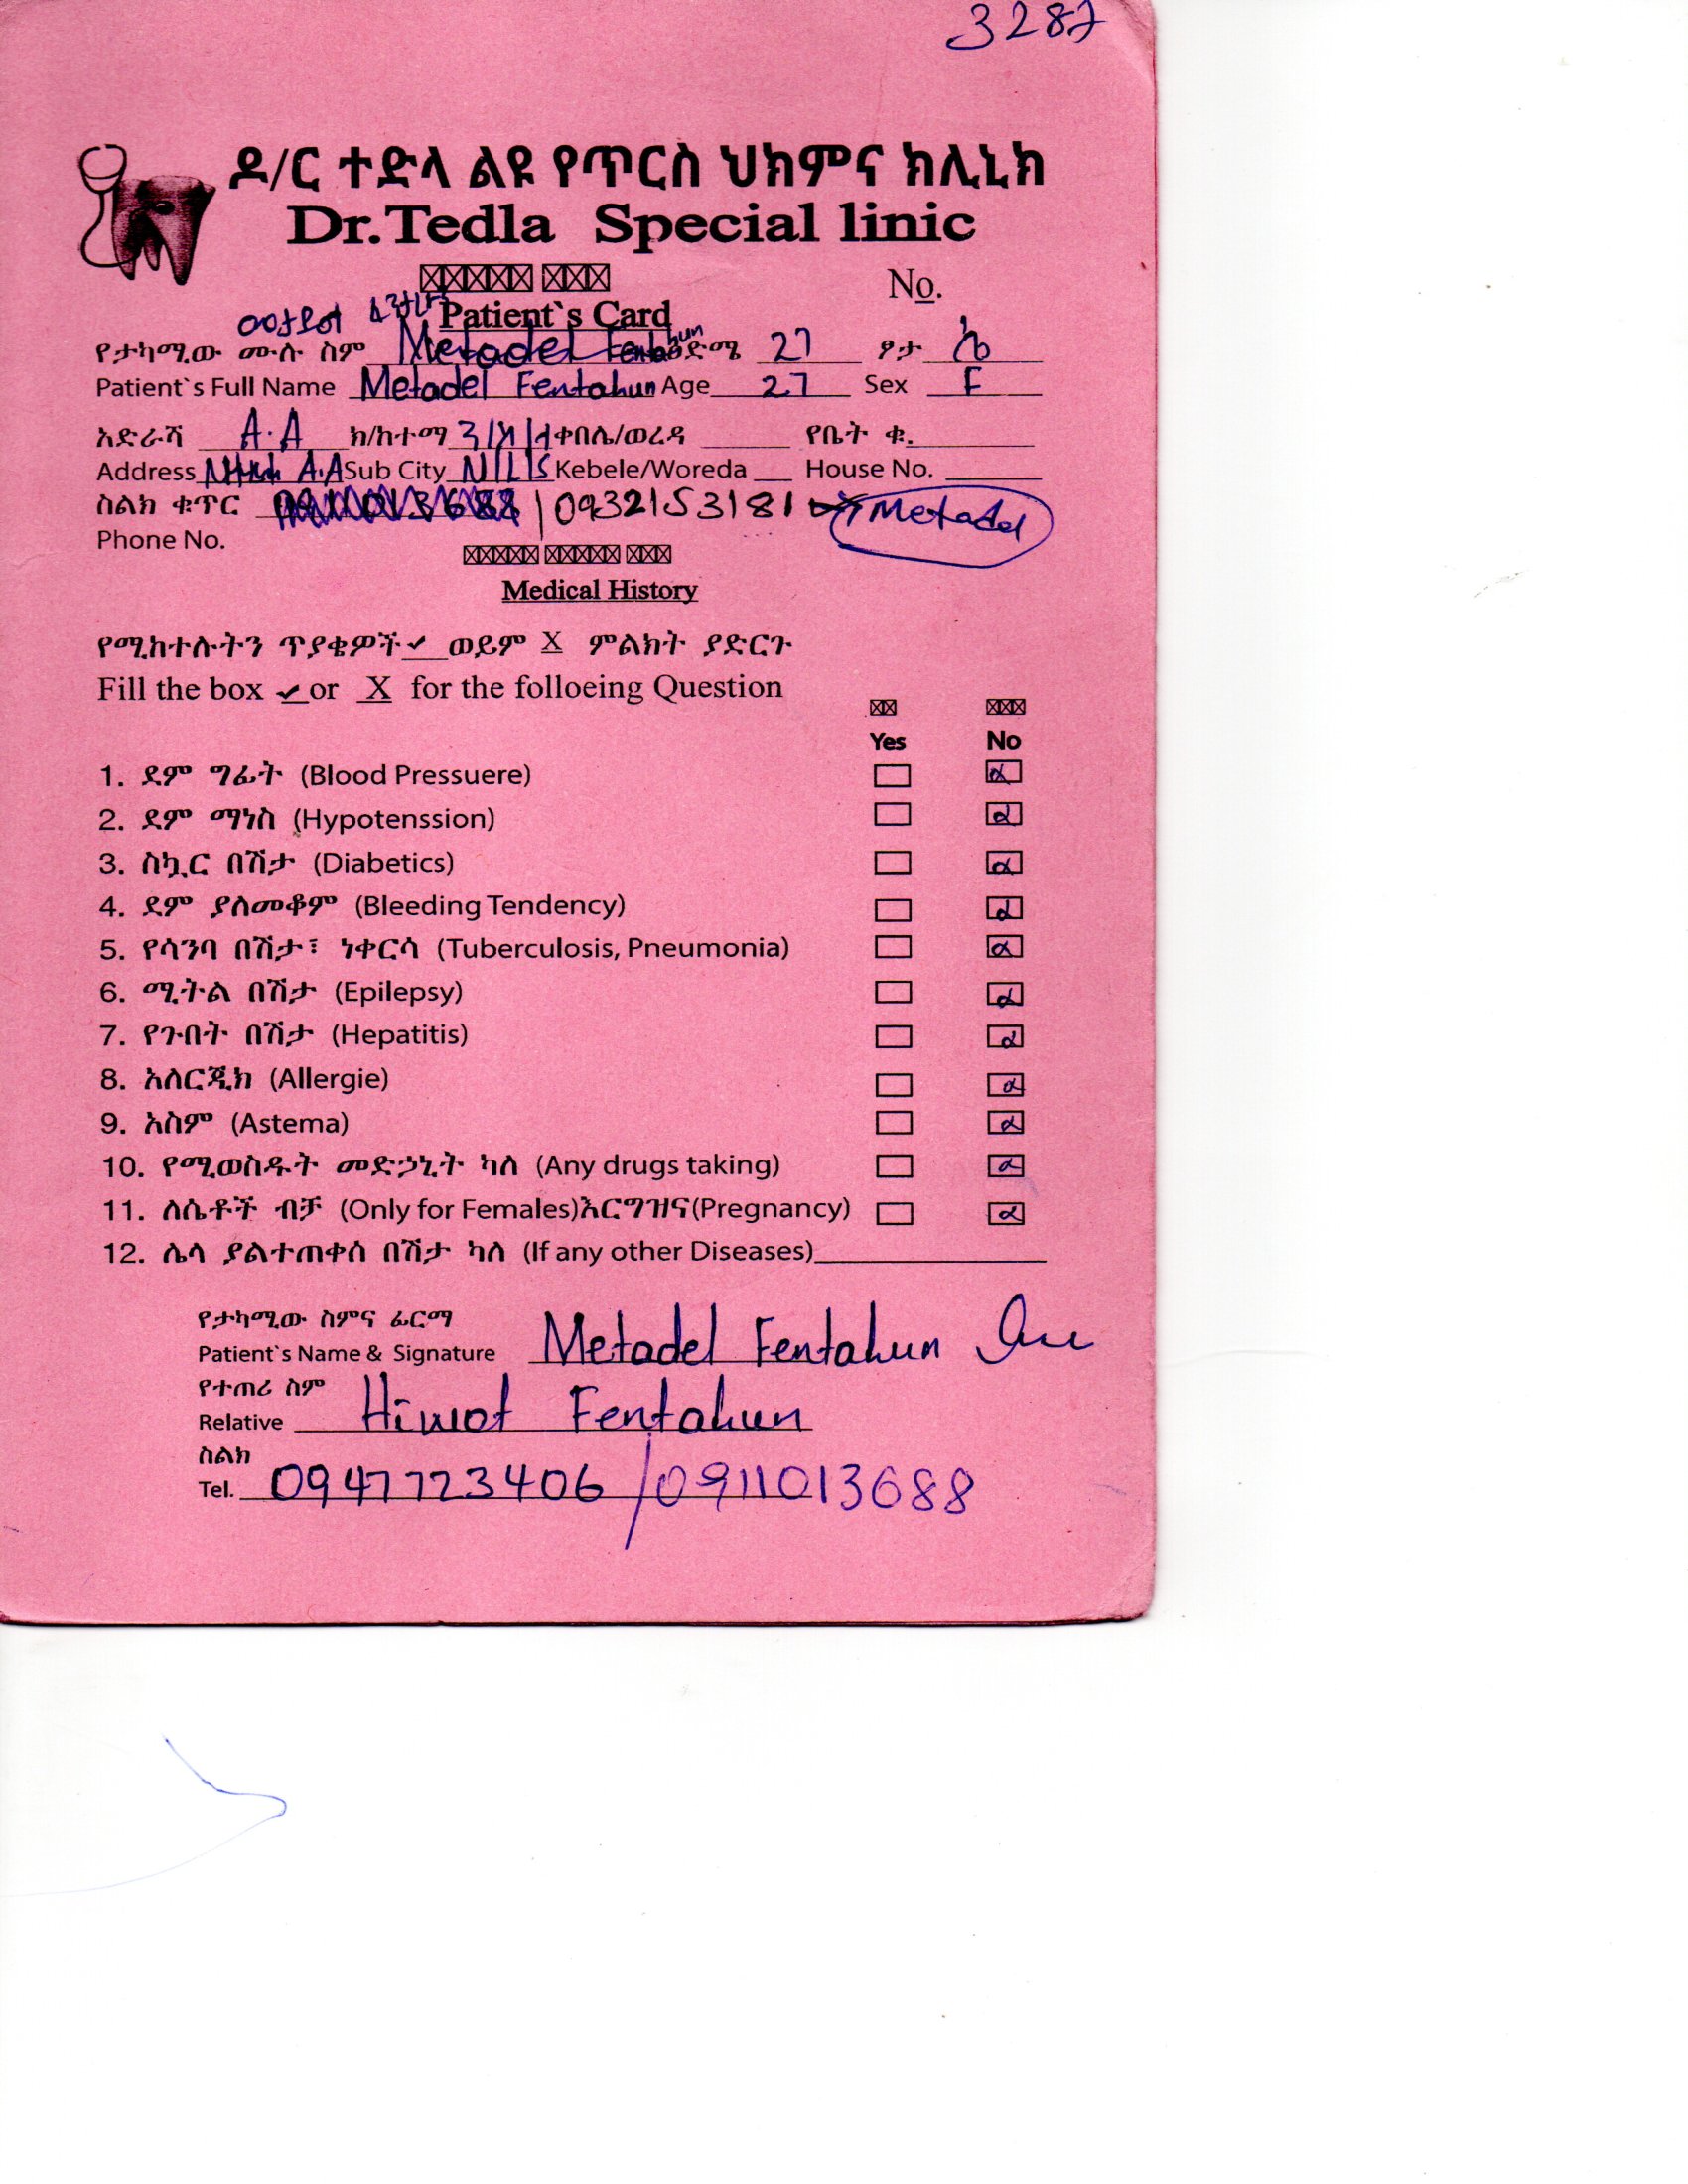 3287
ዶ/ር ተድላ ልዩ የጥርስ ህክምና ክሊኒክ
Dr.Tedla Special linic
No.
Patient`s Card
የታካሚው ሙሉ ስም Metadel Fentahun ዕድሜ 27 ፆታ ሴ
Patient`s Full Name Metadel Fentahun Age 27 Sex F
አድራሻ A.A ክ/ከተማ ቀበሌ/ወረዳ የቤት ቁ.
Address A.A Sub City N/L/S Kebele/Woreda House No.
ስልክ ቁጥር 0911013688 / 0932153181 Metadel
Phone No.
Medical History
የሚከተሉትን ጥያቄዎች ✓ ወይም X ምልክት ያድርጉ
Fill the box ✓ or X for the folloeing Question
Yes No
1. ደም ግፊት (Blood Pressuere)
2. ደም ማነስ (Hypotenssion)
3. ስኳር በሽታ (Diabetics)
4. ደም ያለመቆም (Bleeding Tendency)
5. የሳንባ በሽታ፣ ነቀርሳ (Tuberculosis, Pneumonia)
6. ሚትል በሽታ (Epilepsy)
7. የጉበት በሽታ (Hepatitis)
8. አለርጂክ (Allergie)
9. አስም (Astema)
10. የሚወስዱት መድኃኒት ካለ (Any drugs taking)
11. ለሴቶች ብቻ (Only for Females)እርግዝና(Pregnancy)
12. ሌላ ያልተጠቀሰ በሽታ ካለ (If any other Diseases)
የታካሚው ስምና ፊርማ
Patient`s Name & Signature Metadel Fentahun
የተጠሪ ስም
Relative Hiwot Fentahun
ስልክ
Tel. 0947723406 / 0911013688